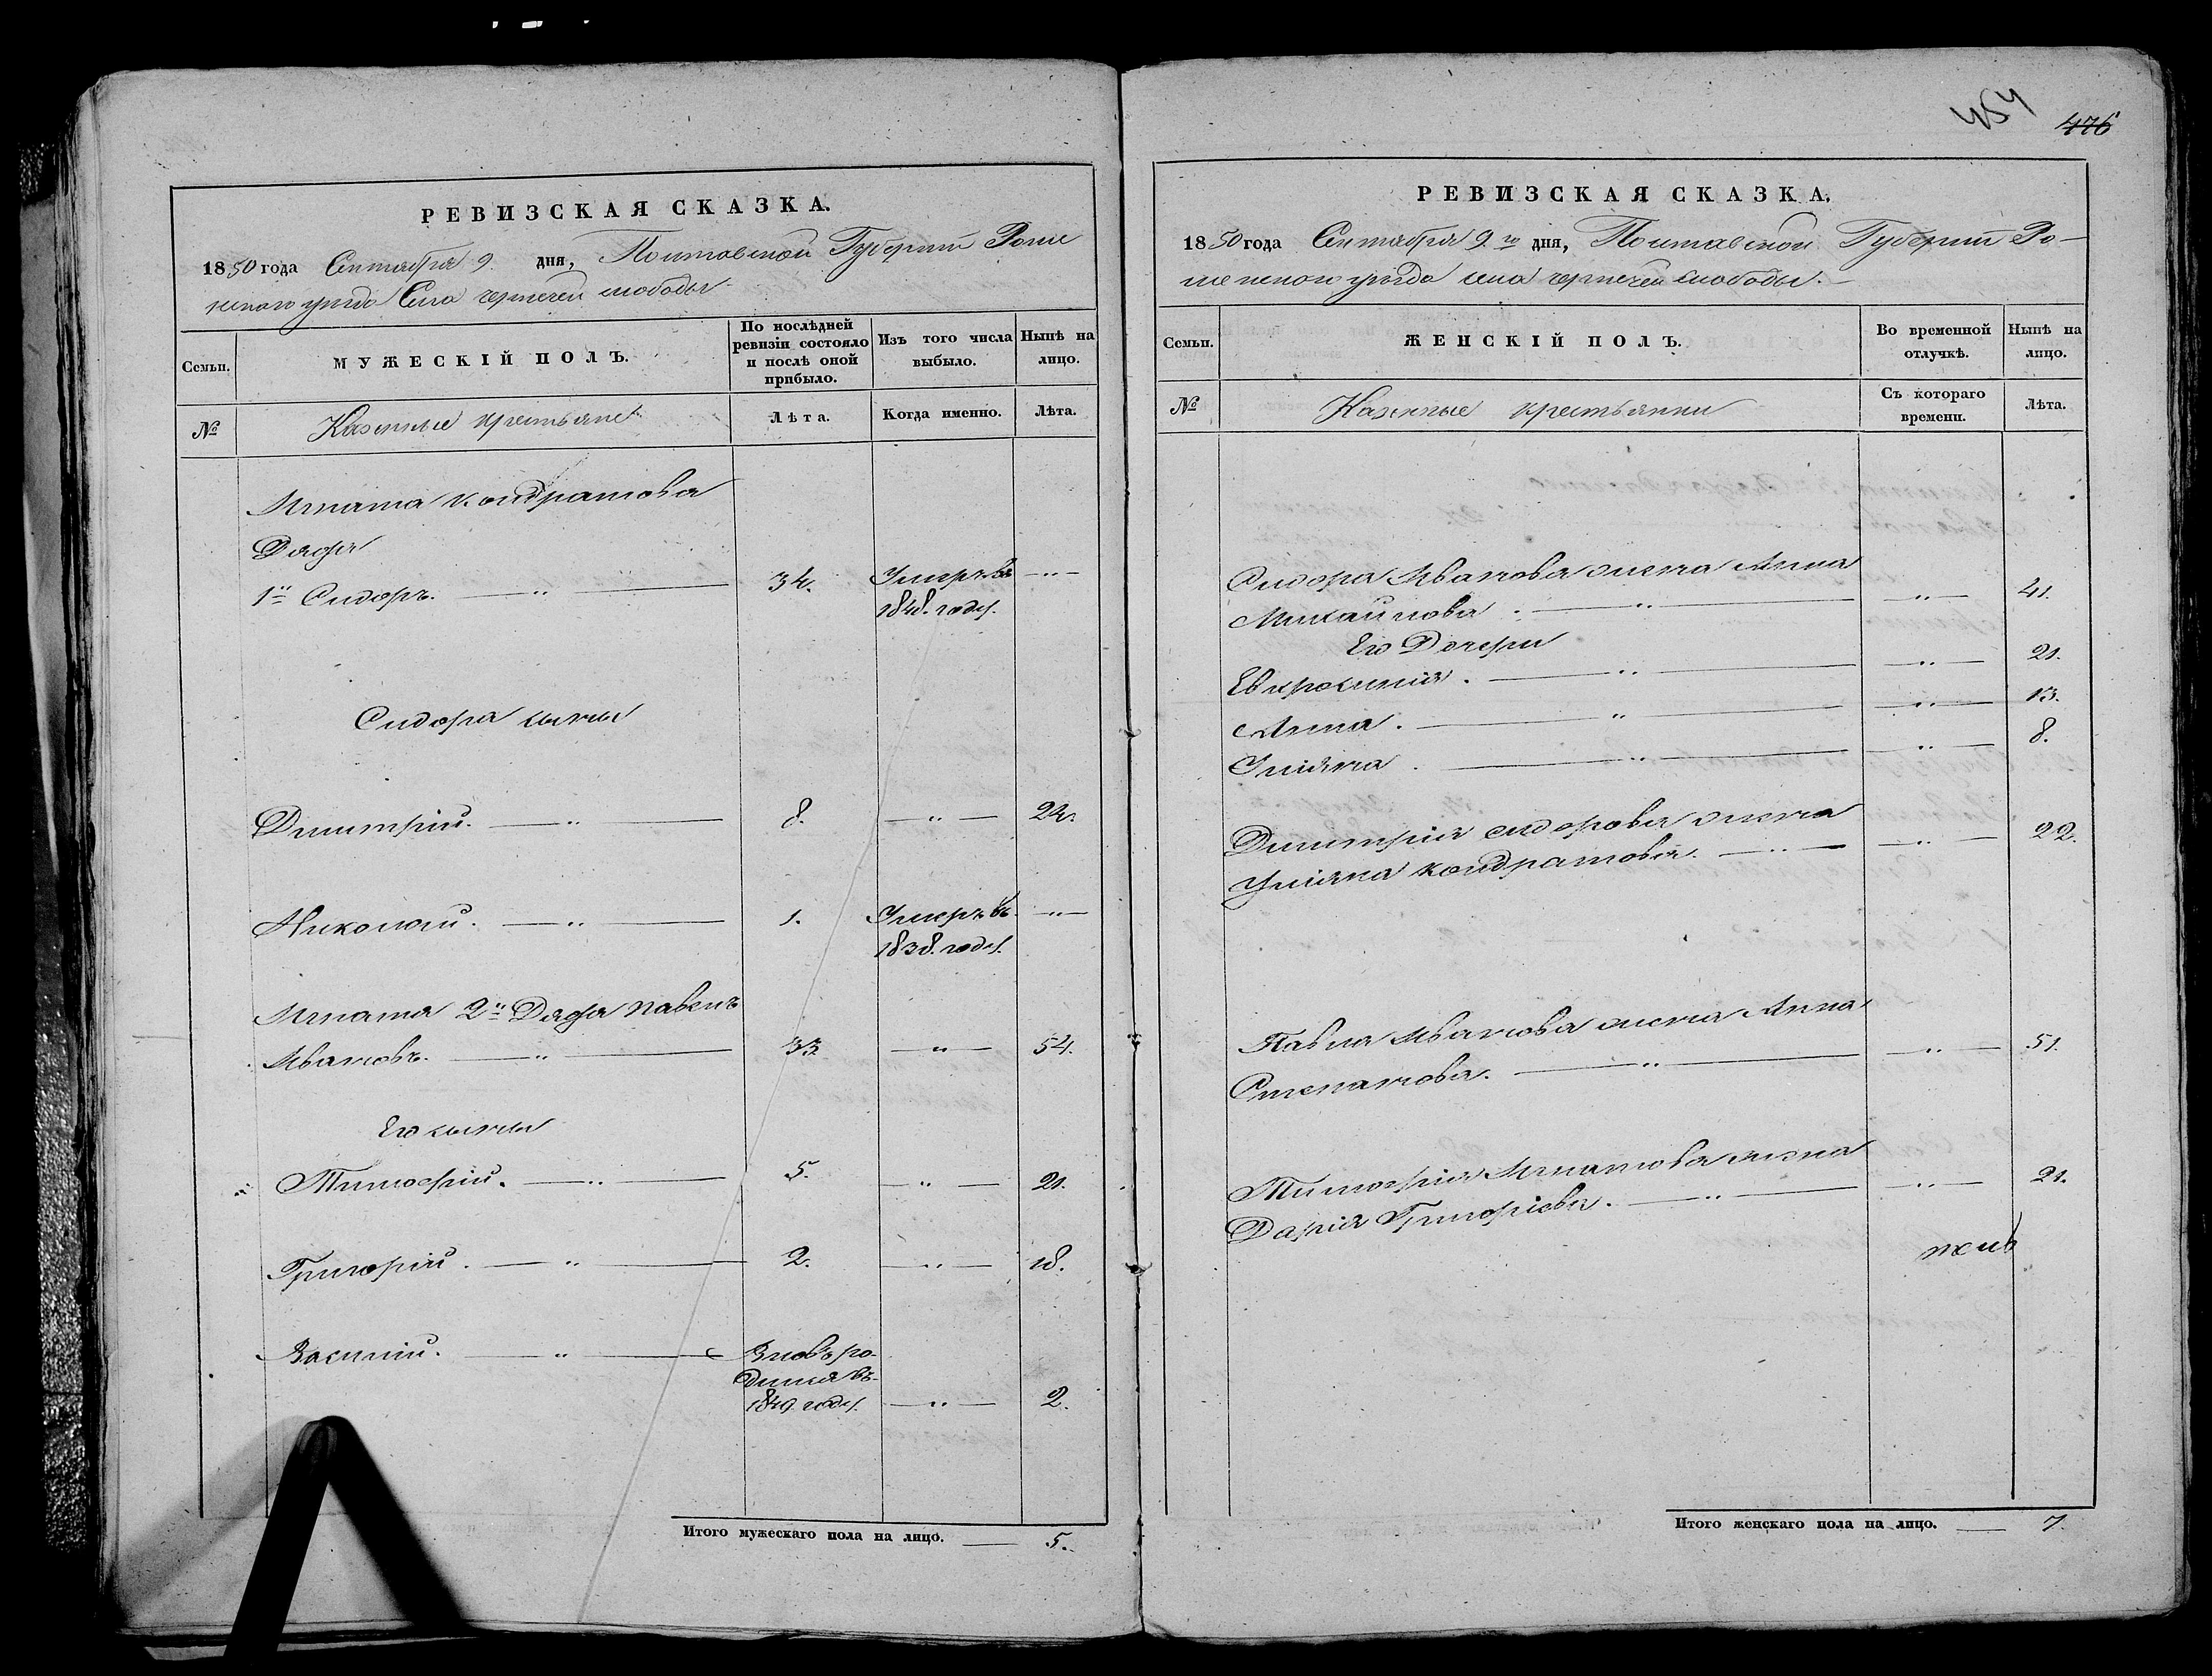 РЕВИЗСКАЯ СКАЗКА.
1850 года Сентября 9. дня, Полтавской Губернии Роме
нского уезда Села чернечей слободы
Семьи.
МУЖЕСКІЙ ПОЛЪ.
По послѣдней ревизіи состояло и послѣ оной прибыло.
Изъ того числа выбыло.
Нынѣ на лицо.
№
Казенные крестьяне
Лѣта.
Когда именно.
Лѣта.
Игната кондратова
Дядя
1й Сидоръ. — " — 34. Умеръ въ — " —
1848. году.
Сидора сыны
Димитрій. — " — 8. — " — 24.
Николай. — " — 1. Умеръ въ — " —
1838. году.
Игната 2й Дядя павелъ
Ивановъ. — " — 33 — " — 54.
Его сыны
Тимофій. — " — 5. — " — 21.
Григорій. — " — 2. — " — 18.
Василій. — " — Вновь ро-
дился въ
1849. году. — " — 2.
Итого мужескаго пола на лицо. — 5.
454
476
РЕВИЗСКАЯ СКАЗКА.
1850 года Сентября 9.го дня, Полтавской Губернии Ро-
менского уезда села чернечей слободы.
Семьи.
ЖЕНСКІЙ ПОЛЪ.
Во временной отлучкѣ.
Нынѣ на лицо.
№
Казенные крестьянки
Съ котораго времени.
Лѣта.
Сидора Иванова жена Анна
Михайлова. — " — — " — 41.
Его Дочери
Евфросинія. — " — — " — 21.
Анна. — " — — " — 13.
Уліяна. — " — — " — 8.
Димитрія сидорова жена
Уліяна кондратова. — " — — " — 22.
Павла Иванова жена Анна
Степанова. — " — — " — 51.
Тимофія Игнатова жена
Дарія Григоріева. — " — — " — 21.
Итого женскаго пола на лицо. — 7.